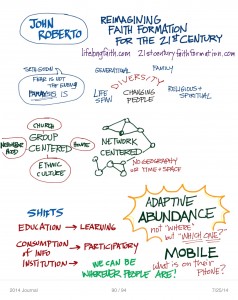 JOHN
ROBERTO
REIMAGINING
FAITH FORMATION
FOR THE 21ST CENTURY
lifelongfaith.com 21stcenturyfaithformation.com
SETH GODIN
FEAR IS NOT
THE ENEMY
PARALYSIS IS
GENERATIONS
FAMILY
DIVERSITY
LIFE
SPAN
CHANGING
PEOPLE
RELIGIOUS +
SPIRITUAL
CHURCH
NEIGHBORHOOD
GROUP
CENTERED
HOUSE
ETHNIC
CULTURE
NETWORK
CENTERED
NO GEOGRAPHY
OR TIME + SPACE
SHIFTS
EDUCATION → LEARNING
CONSUMPTION
OF INFO → PARTICIPATORY
INSTITUTION → WE CAN BE
WHEREVER PEOPLE ARE!
ADAPTIVE
ABUNDANCE
not "WHERE"
but "WHICH ONE?"
MOBILE
what is on their
PHONE?
2014 Journal
90 / 94
7/25/14